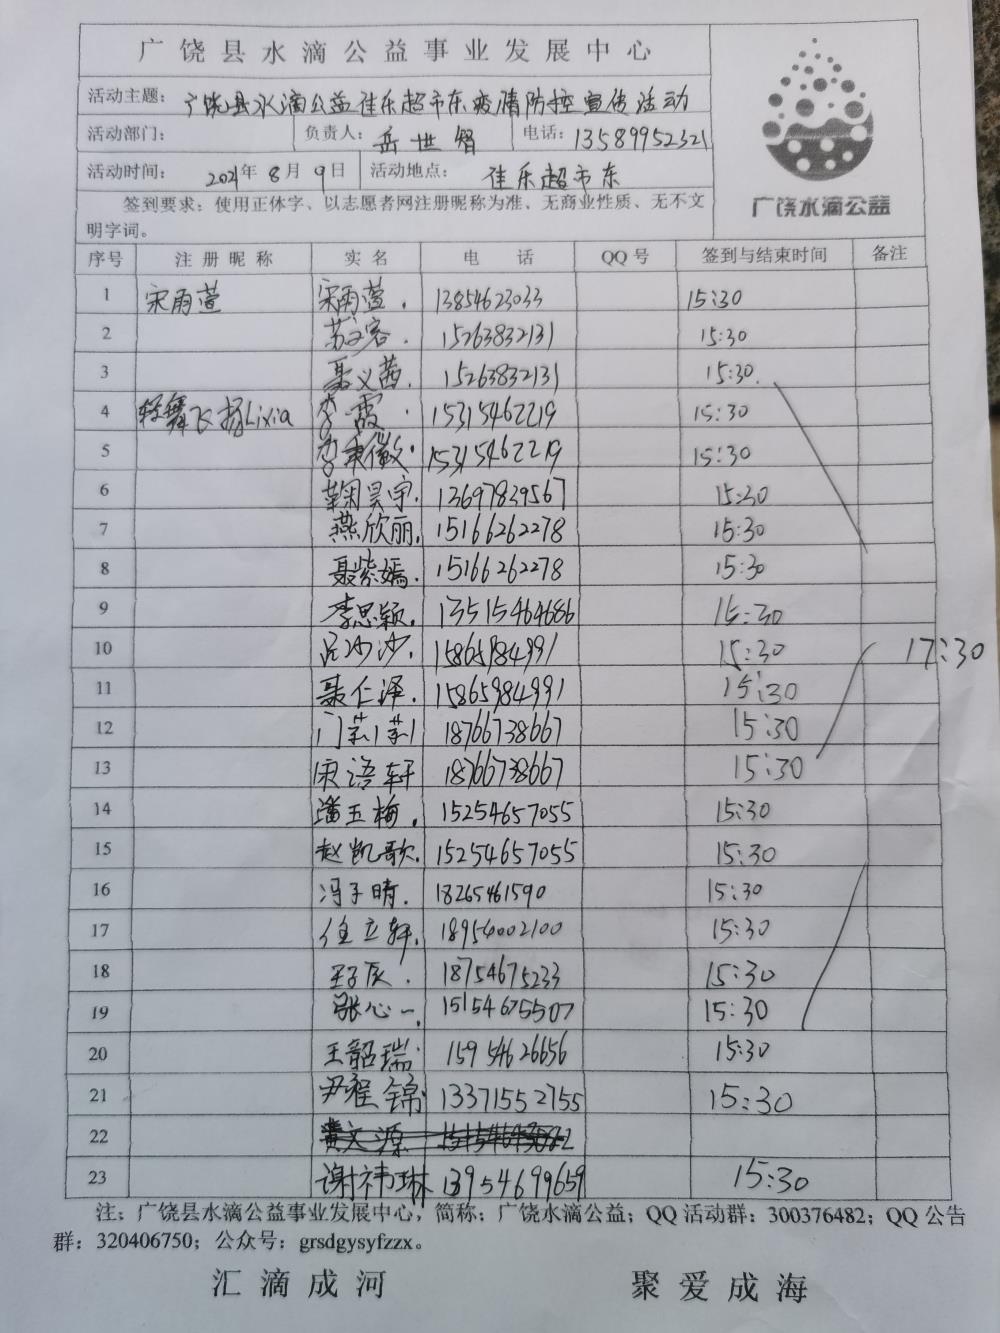 广饶县水滴公益事业发展中心
活动主题： 广饶县水滴公益佳乐超市东疫情防控宣传活动
活动部门： 负责人： 岳世智 电话： 13589952321
活动时间： 2021年8月9日 活动地点： 佳乐超市东
签到要求：使用正体字、以志愿者网注册昵称为准、无商业性质、无不文
明字词。
广饶水滴公益
序号 注册昵称 实名 电话 QQ号 签到与结束时间 备注
1 宋雨萱 宋雨萱. 13854623033 15:30
2 苏文容. 15263832131 15:30
3 聂义茜. 15263832131 15:30.
4 轻舞飞扬Lixia 李霞. 15315462219 15:30
5 李秉徽. 15315462219 15:30
6 鞠昊宇. 13697839567 15:30
7 燕欣丽. 15166262278 15:30
8 聂紫嫣. 15166262278 15:30
9 李思颖. 13515464686 15:30
10 沙沙. 15865984991 15:30 17:30
11 聂仁泽. 15865984991 15:30
12 门莉莉 18766738667 15:30
13 宋语轩 18766738667 15:30
14 潘玉梅. 15254657055 15:30
15 赵凯歌. 15254657055 15:30
16 冯子晴. 18265461590 15:30
17 任立轩. 18954002100 15:30
18 王子辰. 18754675233 15:30
19 张心一. 15154675507 15:30
20 王韶瑞. 15954626656 15:30
21 尹程锦 13371552755 15:30
22 黄文源
23 谢祎琳 13954699659 15:30
注：广饶县水滴公益事业发展中心，简称：广饶水滴公益；QQ活动群：300376482；QQ公告
群：320406750；公众号：grsdgysyfzzx。
汇滴成河 聚爱成海